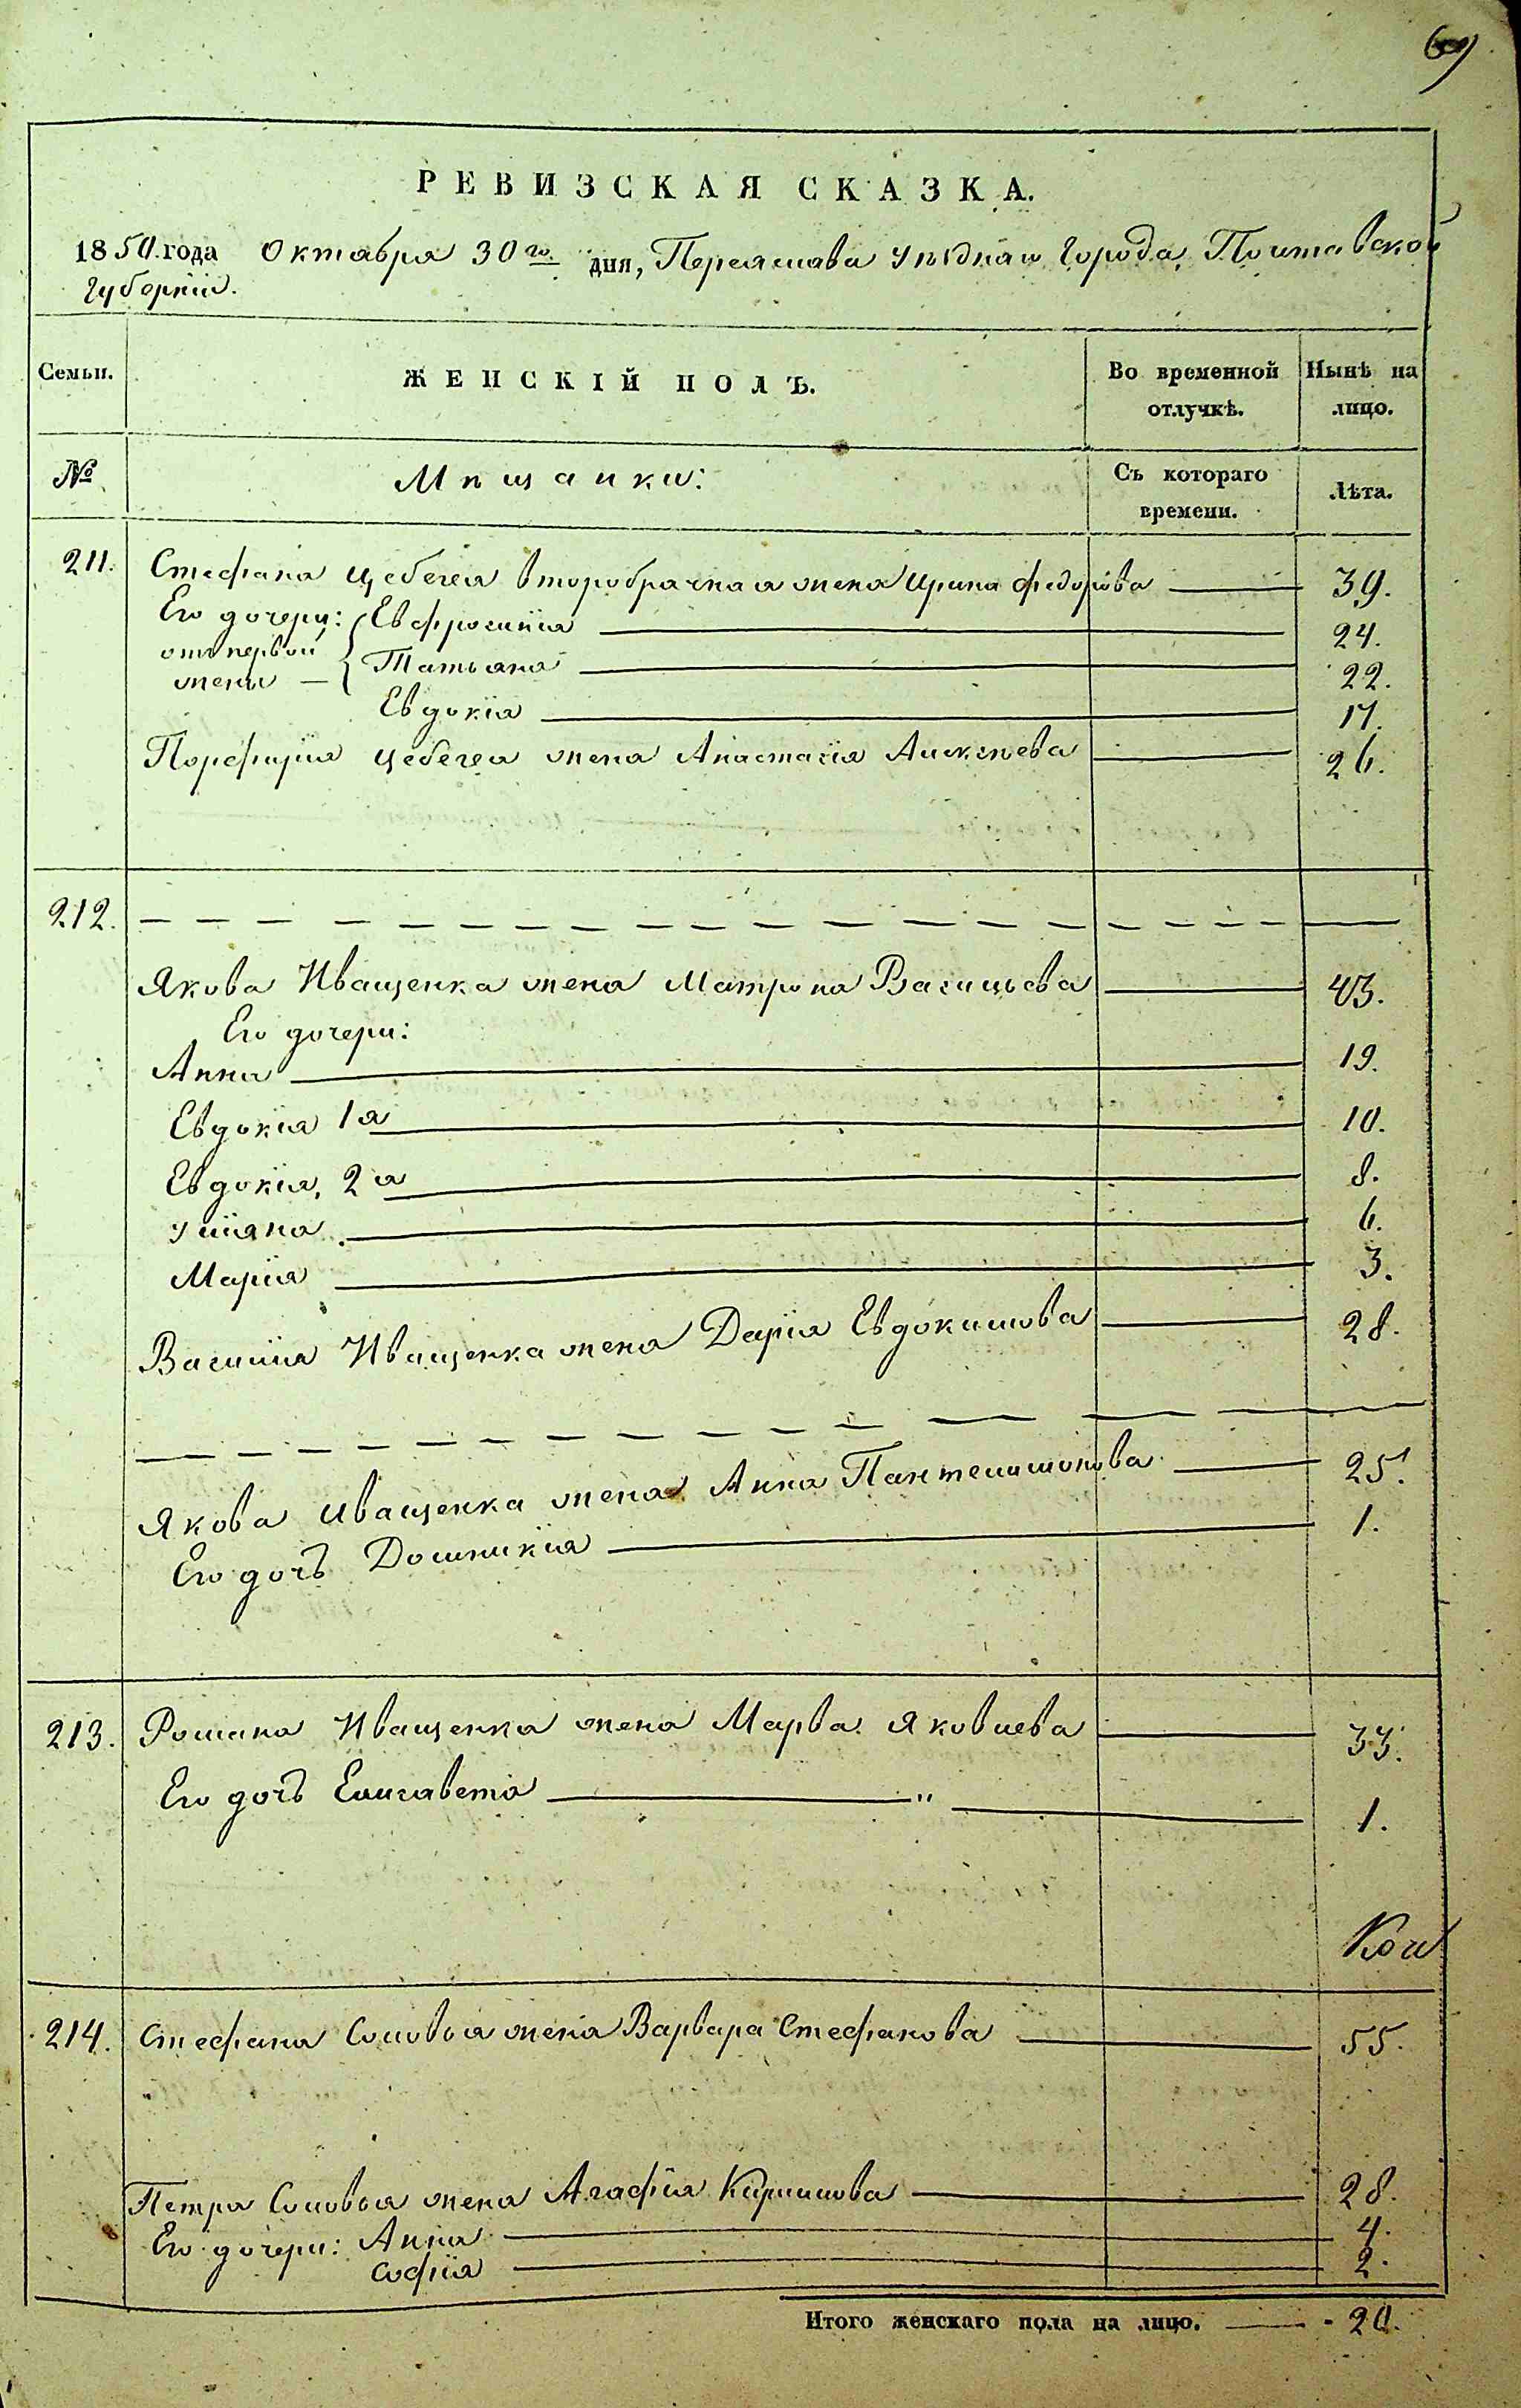 69
РЕВИЗСКАЯ СКАЗКА.
1850 года Октября 30го дня, Переяслава уѣзднаго Города, Полтавской
Губерніи.
Семьи.
ЖЕНСКІЙ ПОЛЪ.
Во временной отлучкѣ.
Нынѣ на лицо.
№
Мѣщанки:
Съ котораго времени.
Лѣта.
211. Стефана Цебегея второбрачная жена Ирина Федорова 39.
Его дочери: Евфросинія 24.
отъ первой
жены Татьяна 22.
Евдокія 17.
Порфирія Цебегея жена Анастасія Алексѣева 26.
212.
Якова Иващенка жена Матрона Васильева 43.
Его дочери:
Анна 19.
Евдокія 1я 10.
Евдокія, 2я 8.
Уліяна 6.
Марія 3.
Василія Иващенка жена Дарія Евдокимова 28.
Якова Иващенка жена Анна Пантелимонова 25.
Его дочь Домникія 1.
213. Романа Иващенка жена Марѳа Яковлева 33.
Его дочь Елисавета " 1.
214. Стефана Соловья жена Варвара Стефанова 55.
Петра Соловья жена Агафія Кирилова 28.
Его дочери: Анна 4.
Софія 2.
Итого женскаго пола на лицо. 20.